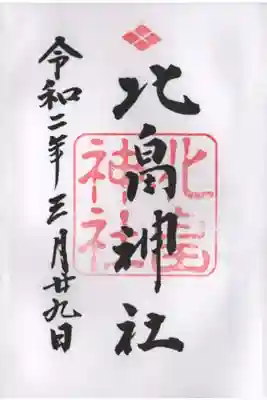 北畠神社
令和二年三月廿九日
北畠
神社